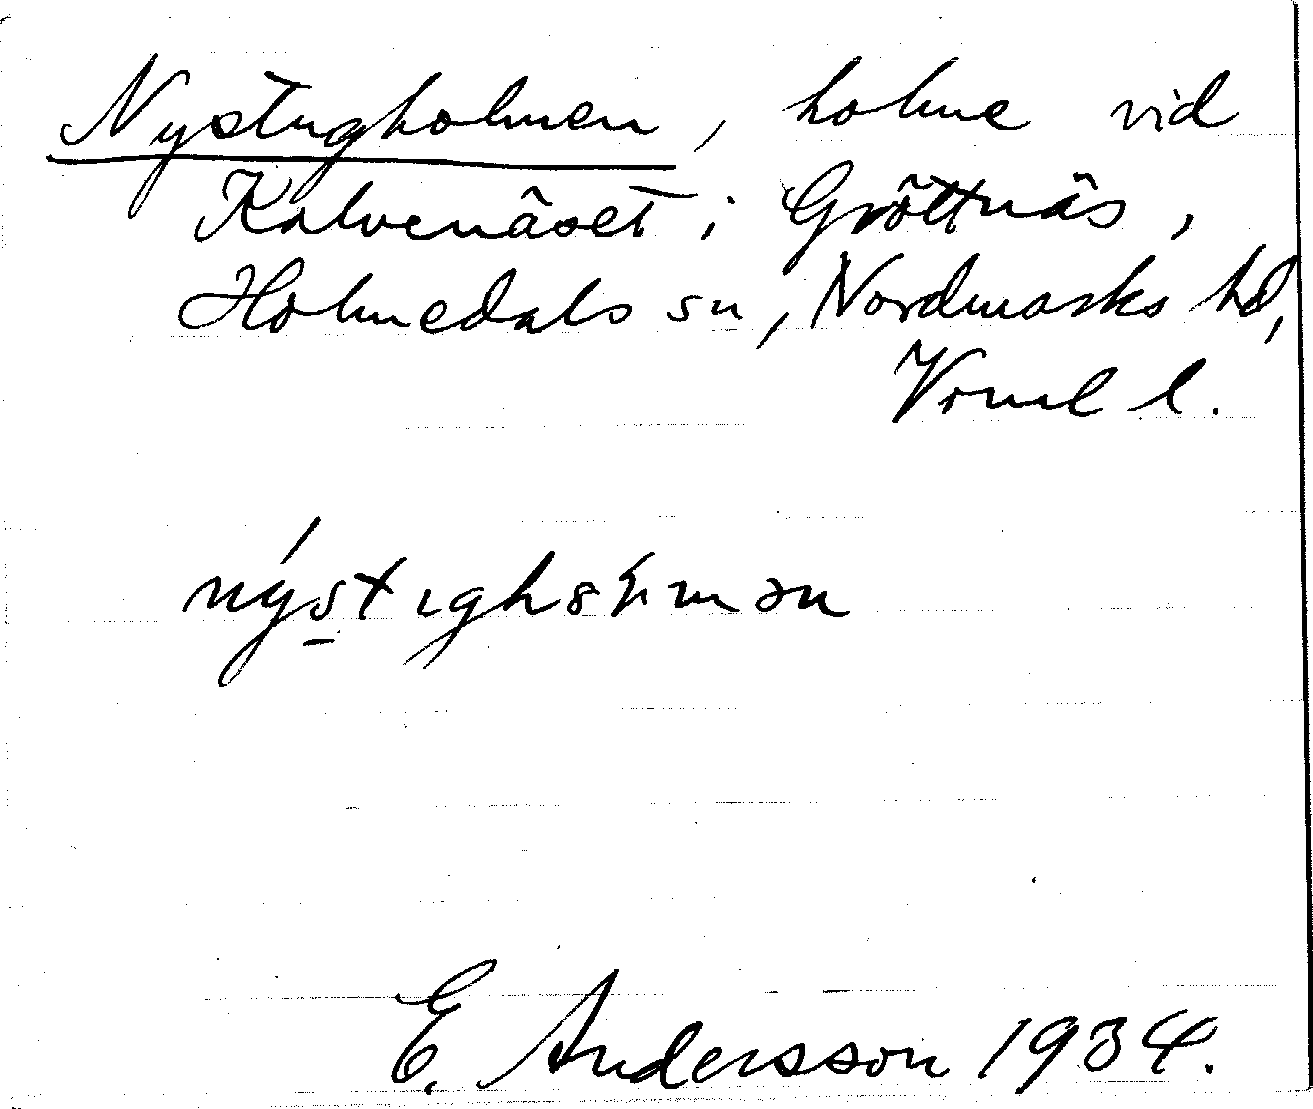 Nystugholmen, holme vid
Kalvenäset i Gröttnäs,
Holmedals sn, Nordmarks hd,
Vrml l.
E. Andersson 1934.